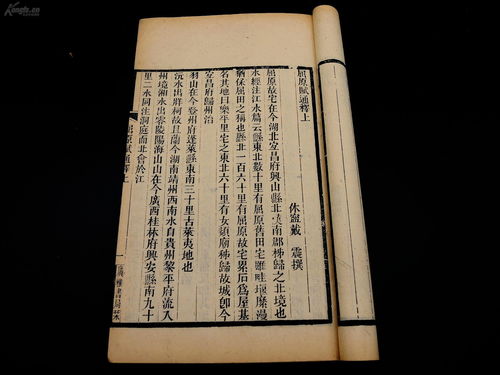 屈原賦通釋上
休寧戴 震撰
屈原故宅在今湖北宜昌府興山縣北漢南郡秭歸之北境也
水經注江水篇云縣東北數十里有屈原舊田宅雖畦堰縻漫
猶保屈田之稱也縣北一百六十里有屈原故宅累石爲屋基
名其地曰樂平里宅之東北六十里有女嬃廟秭歸故城卽今
宜昌府歸州治
羽山在今登州府蓬萊縣東南三十里古萊夷地也
沅水出牂牁故且蘭今湖南靖州西南水自貴州黎平府流入
州境湘水出零陵陽海山山在今廣西桂林府興安縣南九十
里二水同注洞庭而北會於江
屈原賦通釋上
一
廣雅書局栞
Kongfz.cn